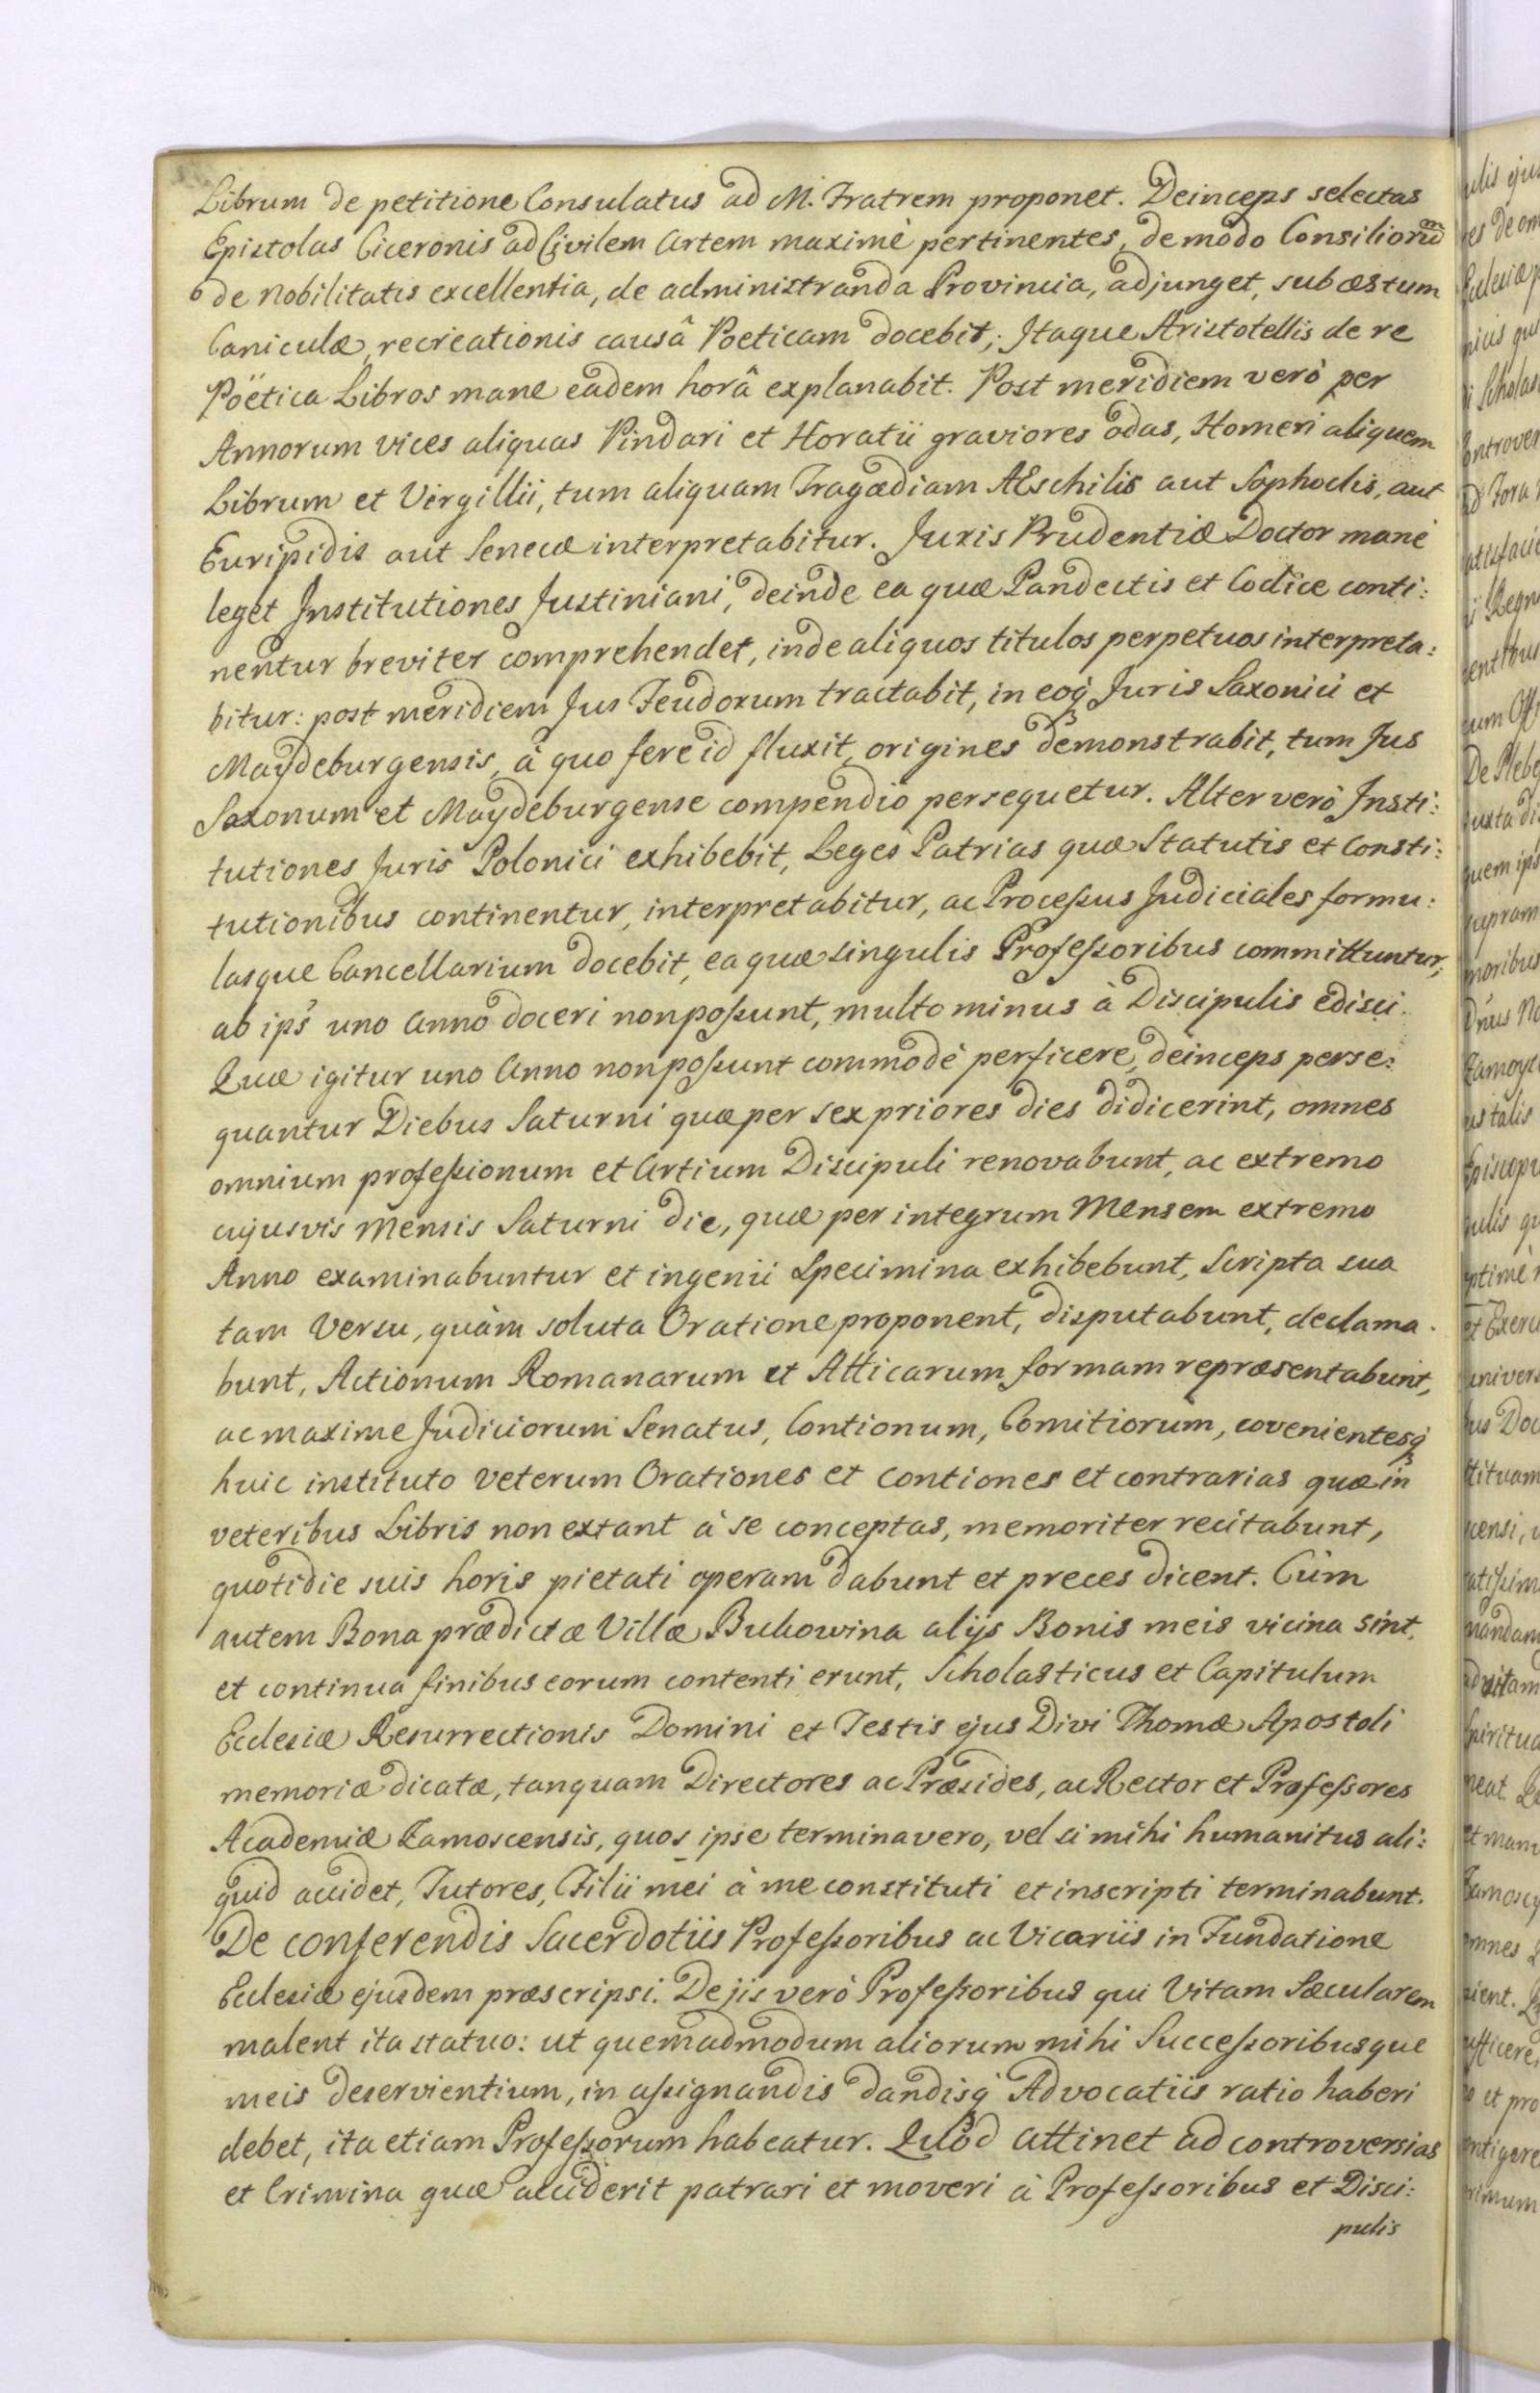 Librum de petitione Consulatus ad M. Fratrem proponet. Deinceps selectas
Epistolas Ciceronis ad Civilem Artem maximè pertinentes, de modo Consiliorum
de nobilitatis excellentia, de administranda Provincia, adjunget, sub æstum
Caniculæ, recreationis causâ Poeticam docebit; Itaque Aristotellis de re
Pöetica Libros mane eadem horâ explanabit. Post meridiem verò per
Annorum vices aliquas Pindari et Horatii graviores odas, Homeri aliquem
Librum et Virgillii, tum aliquam Tragædiam AEschilis aut Sophoclis, aut
Euripidis aut Senecæ interpretabitur. Juris Prudentiæ Doctor manè
leget Institutiones Justiniani, deinde ea quæ Pandectis et Codice conti:
nentur breviter comprehendet, inde aliquos titulos perpetuos interpreta:
bitur: post meridiem Jus Feudorum tractabit, in eoq́ Juris Saxonici et
Maydeburgensis, à quo fere id fluxit, origines demonstrabit, tum Jus
Saxonum et Maydeburgense compendio persequetur. Alter verò Insti:
tutiones Juris Polonici exhibebit, Leges Patrias quæ Statutis et Consti:
tutionibus continentur, interpretabitur, ac Processus Judiciales formu:
lasque Cancellarium docebit, ea quæ singulis Professoribus committuntur,
ab ips' uno Anno doceri non possunt, multo minus à Discipulis edisci.
Quæ igitur uno Anno non possunt commodè perficere, deinceps perse:
quantur Diebus Saturni quæ per sex priores dies didicerint, omnes
omnium professionum et Artium Discipuli renovabunt, ac extremo
cujusvis Mensis Saturni die, quæ per integrum Mensem extremo
Anno examinabuntur et ingenii Specimina exhibebunt, Scripta sua
tam Versu, quàm soluta Oratione proponent, disputabunt, declama.
bunt, Actionum Romanarum et Atticarum formam repræsentabunt,
ac maxime Judiciorum Senatus, Contionum, Comitiorum, covenientesq́
huic instituto veterum Orationes et Contiones et contrarias quæ in
veteribus Libris non extant à se conceptas, memoriter recitabunt,
quotidie suis horis pietati operam dabunt et preces dicent. Cùm
autem Bona prædictæ Villæ Bukowina alijs Bonis meis vicina sint,
et continua finibus eorum contenti erunt, Scholasticus et Capitulum
Ecclesiæ Resurrectionis Domini et Testis ejus Divi Thomæ Apostoli
memoriæ dicatæ, tanquam Directores ac Præsides, ac Rector et Professores
Academiæ Zamoscensis, quos ipse terminavero, vel si mihi humanitus ali:
quid accidet, Tutores, Filii mei à me constituti et inscripti terminabunt.
De conferendis Sacerdotiis Professoribus ac Vicariis in Fundatione
Ecclesiæ ejusdem præscripsi. De jis verò Professoribus qui Vitam Sæcularem
malent ita statuo: ut quemadmodum aliorum mihi Successoribusque
meis deservientium, in assignandis dandisq́ Advocatiis ratio haberi
debet, ita etiam Professorum habeatur. Quod attinet ad controversias
et Crimina quæ acciderit patrari et moveri à Professoribus et Disci:
pulis